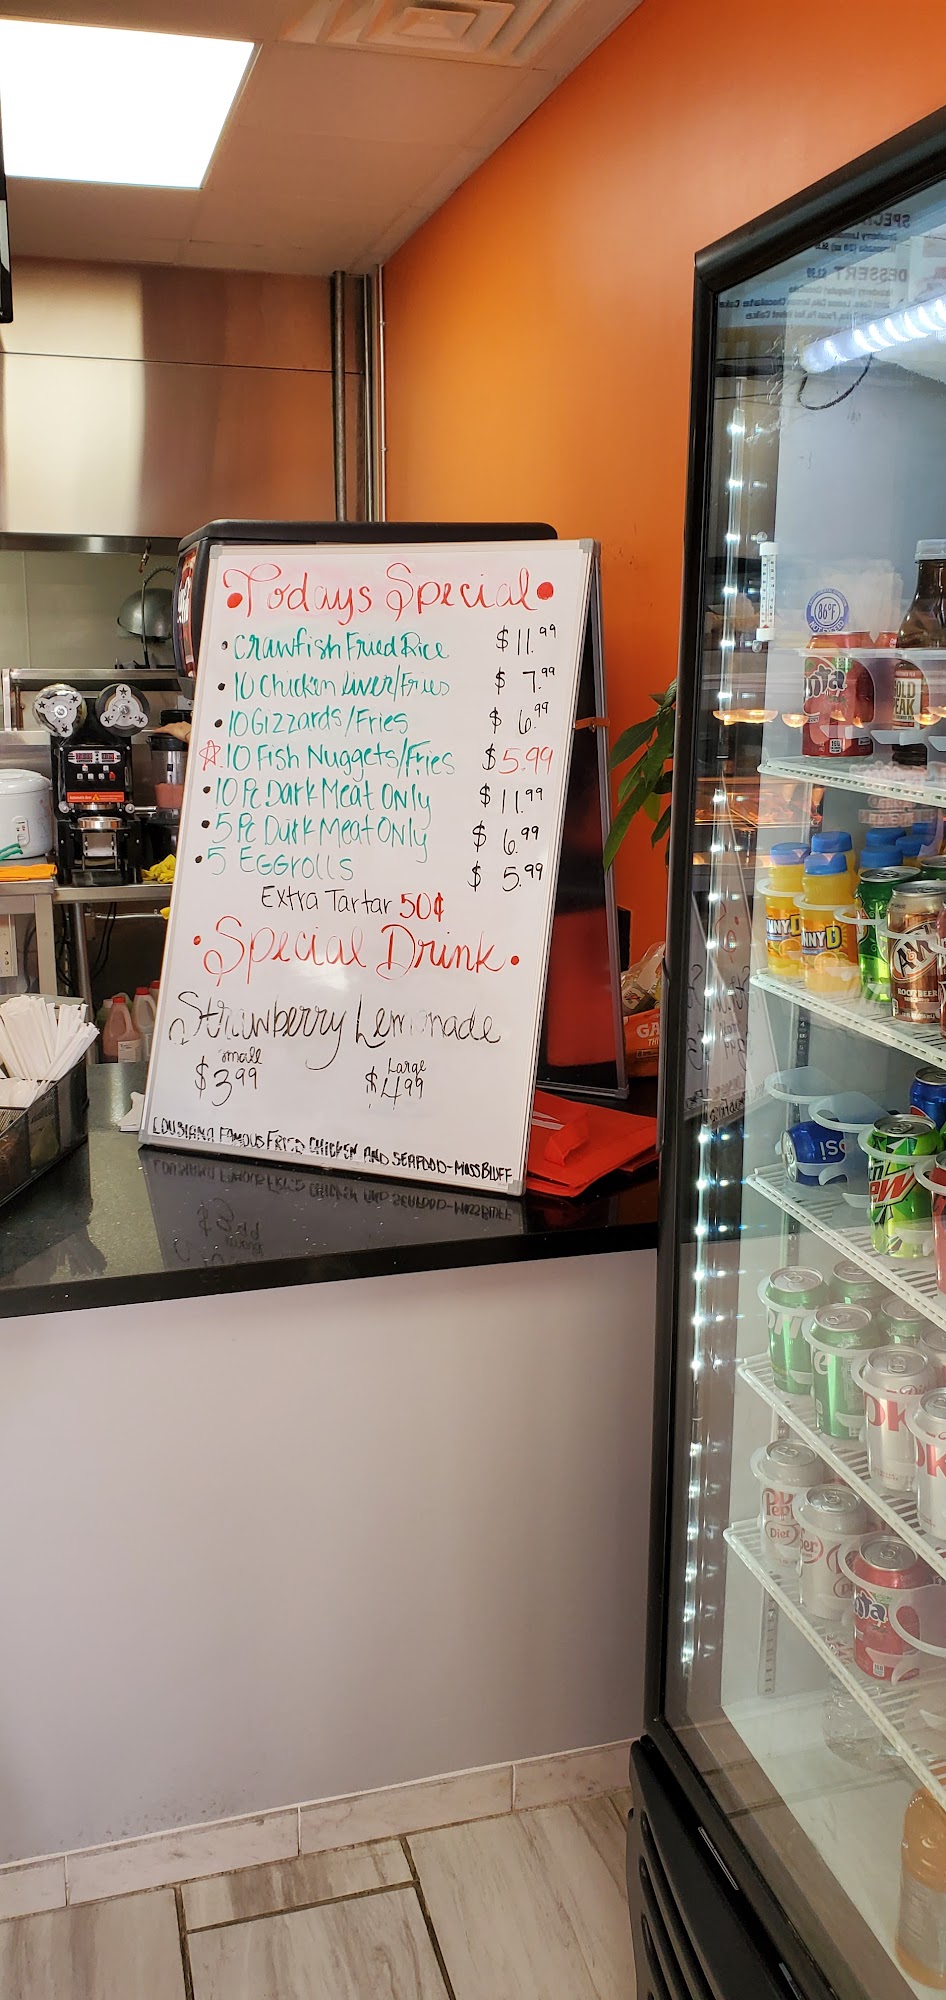 •Todays Special•
• Crawfish Fried Rice $11.99
• 10 Chicken liver/Fries $ 7.99
• 10 Gizzards/Fries $ 6.99
☆ 10 Fish Nuggets/Fries $5.99
• 10 Pc Dark Meat Only $11.99
• 5 Pc Dark Meat Only $ 6.99
• 5 Eggrolls $ 5.99
Extra Tartar 50¢
• Special Drink •
Strawberry Lemonade
Small Large
$3.99 $4.99
LOUSIANA FAMOUS FRIED CHICKEN AND SEAFOOD-MOSS BLUFF
DESSERT
86°F
nta
OLD
EAK
NNYD
NNYD
A&W
ROOT BEER
ew
Diet
OK
Pep
Diet
nta